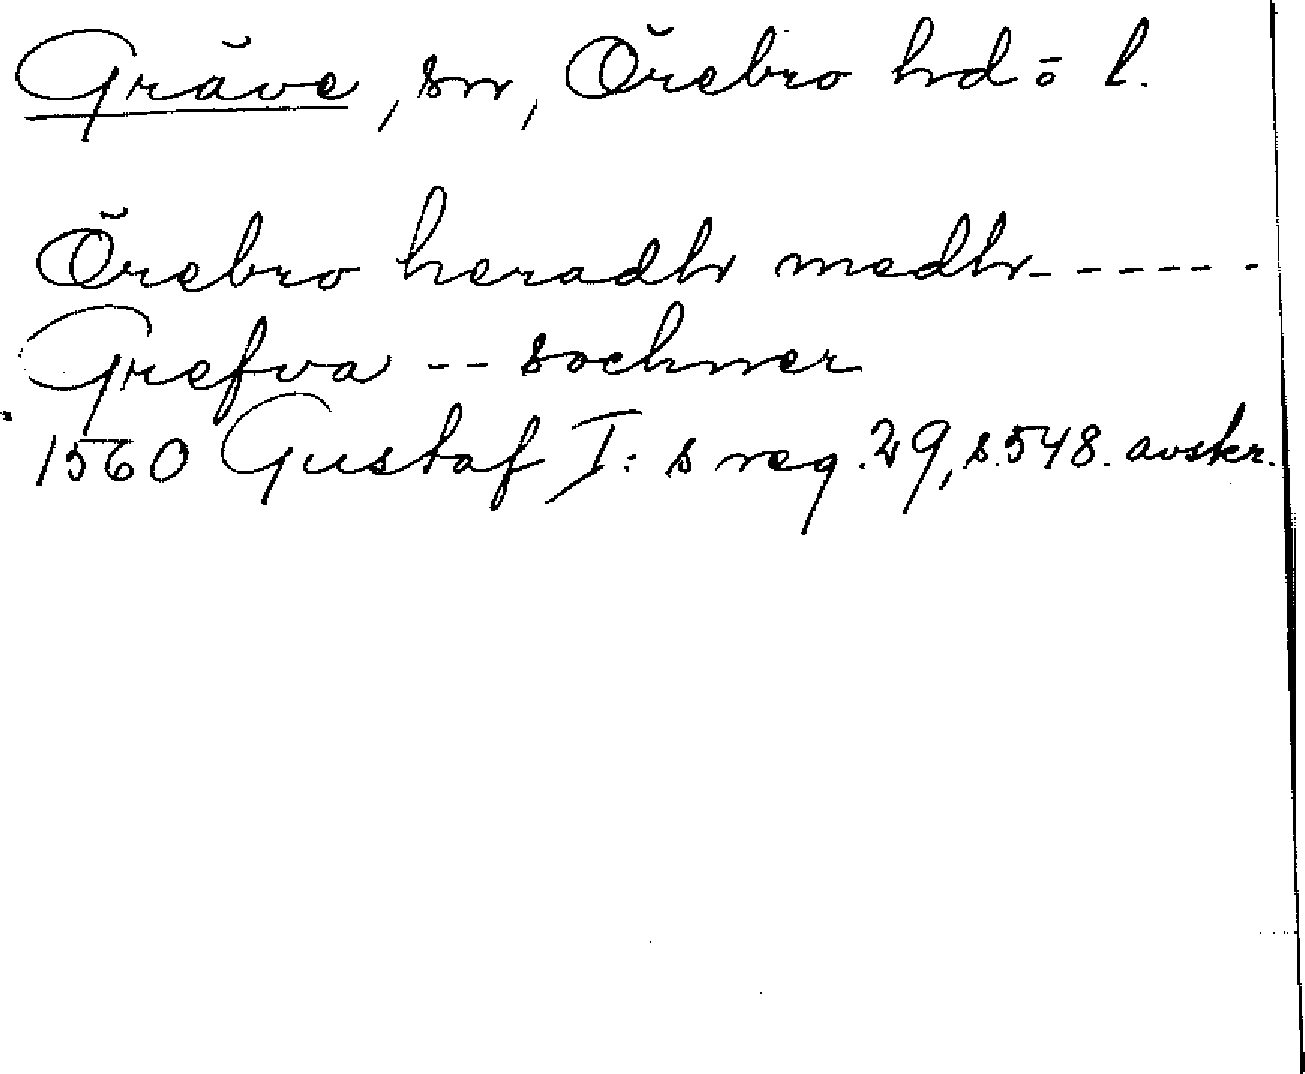 Gräve, sn, Örebro hd o l.
Örebro heradh medh ------
Grefva -- sochner
1560 Gustaf I:s reg. 29, s. 548. avskr.